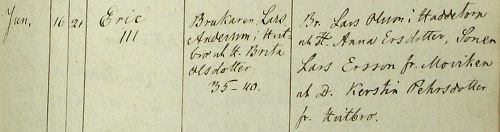 Jun. 16 21 Eric
III
Brukaren Lars
Andersson i Hvit-
bro at H. Brita
Olsdotter
35-40.
Br. Lars Olsson i
at H. Anna Ersdotter, Sonen
Lars Ersson fr. Moviken
at D. Kerstin Pehrsdotter
fr. Hvitbro.